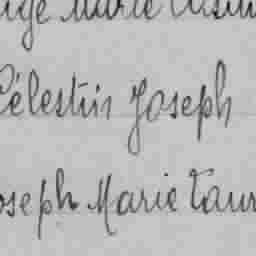 Marie
Célestin Joseph
oseph Marie Laur